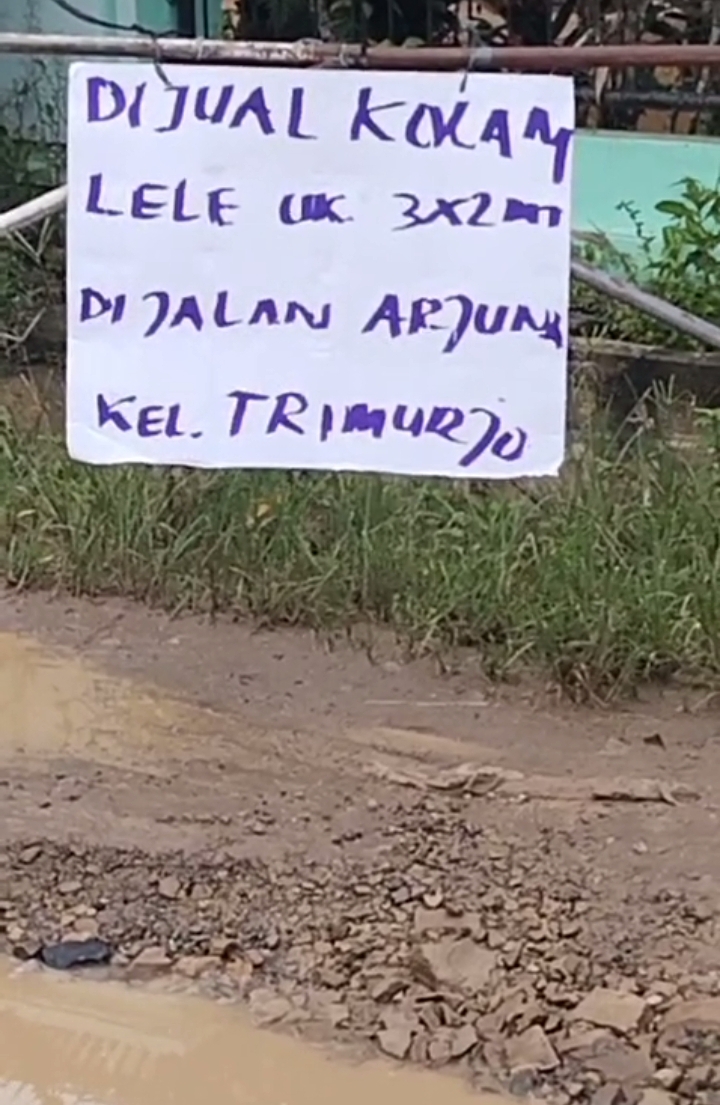 DIJUAL KOLAM
LELE UK 3X2m
DI JALAN ARJUNA
KEL. TRIMURJO